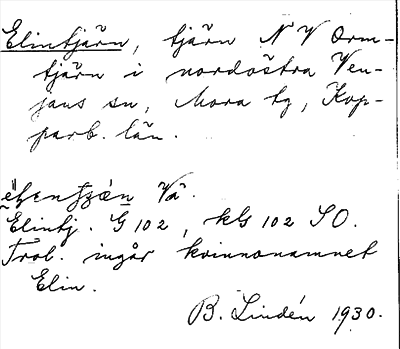 Elintjärn, tjärn N V Orm-
tjärn i nordöstra Ven-
jans sn, Mora tg, Kop-
parb. län.
Vä.
Elintj. G 102, kls 102 SO.
Trol. ingår kvinnonamnet
Elin.
B. Lindén 1930.